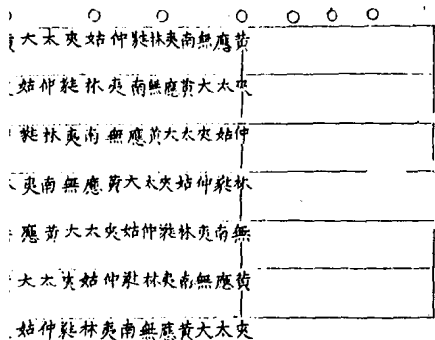 大太夾姑仲蕤林夷南無應黄
姑仲蕤林夷南無應黄大太夾
蕤林夷南無應黄大太夾姑仲
夷南無應黄大太夾姑仲蕤林
應黄大太夾姑仲蕤林夷南無
大太夾姑仲蕤林夷南無應黄
姑仲蕤林夷南無應黄大太夾